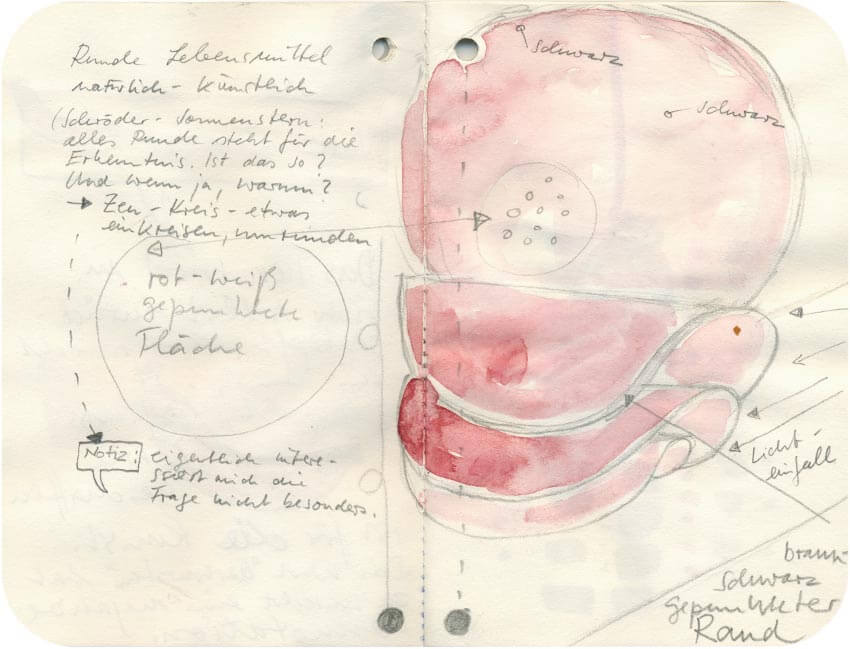 Runde Lebensmittel
natürlich - künstlich
(Schröder - Sonnenstern:
alles Runde steht für die
Erkenntnis. Ist das so?
Und wenn ja, warum?
→ Zen - Kreis - etwas
einkreisen, umrunden
rot - weiß
gepunktete
Fläche
Notiz:
eigentlich intere-
ssiert mich die
Frage nicht besonders.
schwarz
schwarz
Licht-
einfall
braun-
schwarz
gepunkteter
Rand